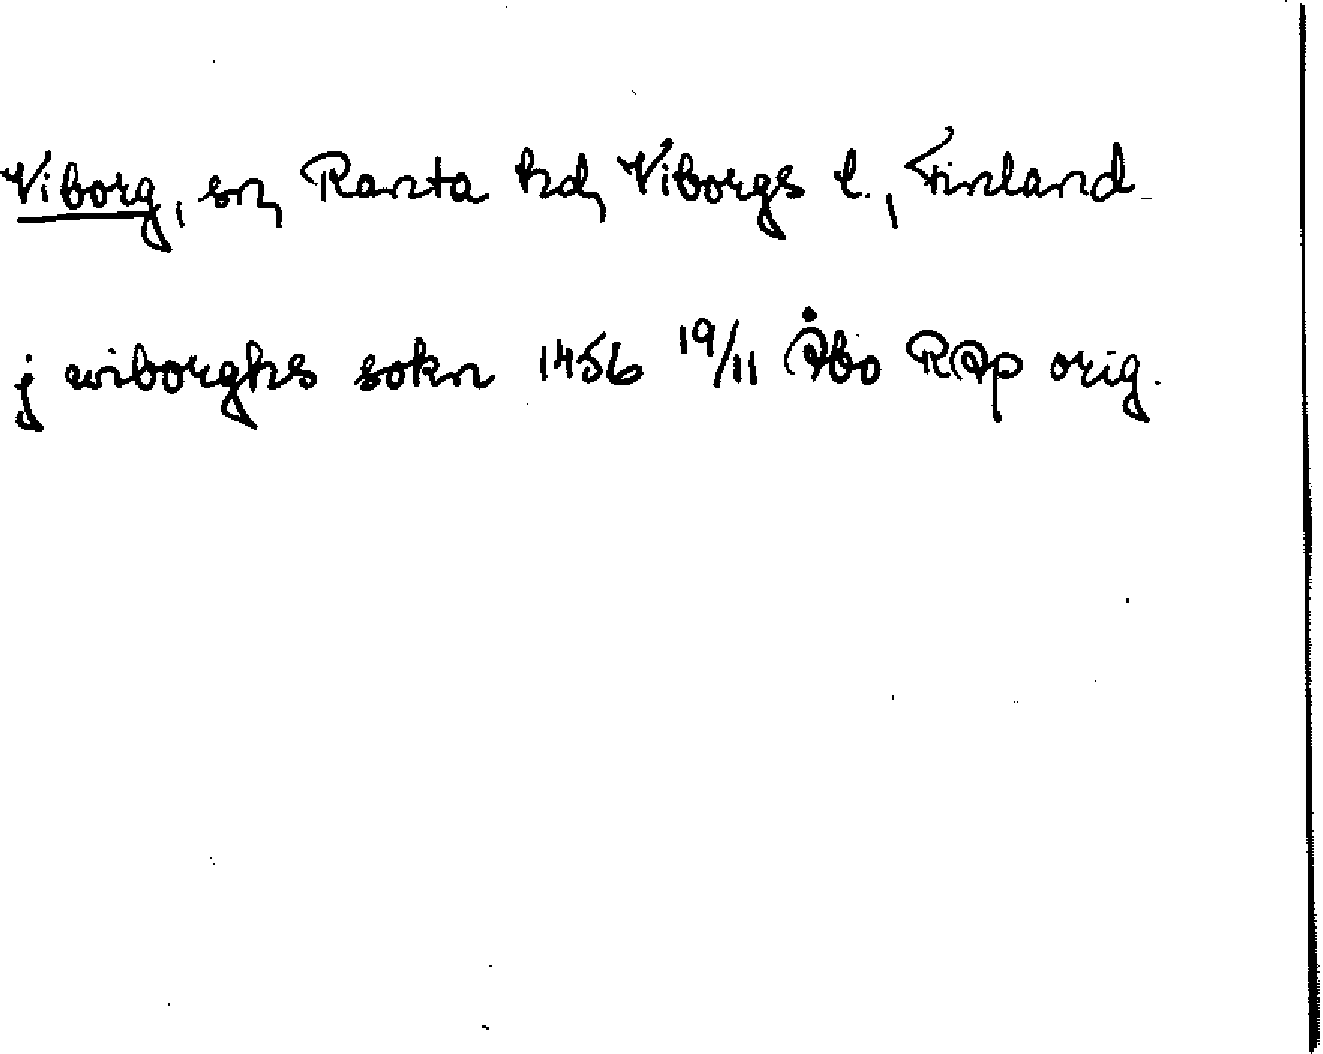 Viborg, sn, Ranta hd, Viborgs l., Finland
j wiborghs sokn 1456 19/11 Åbo RAp orig.